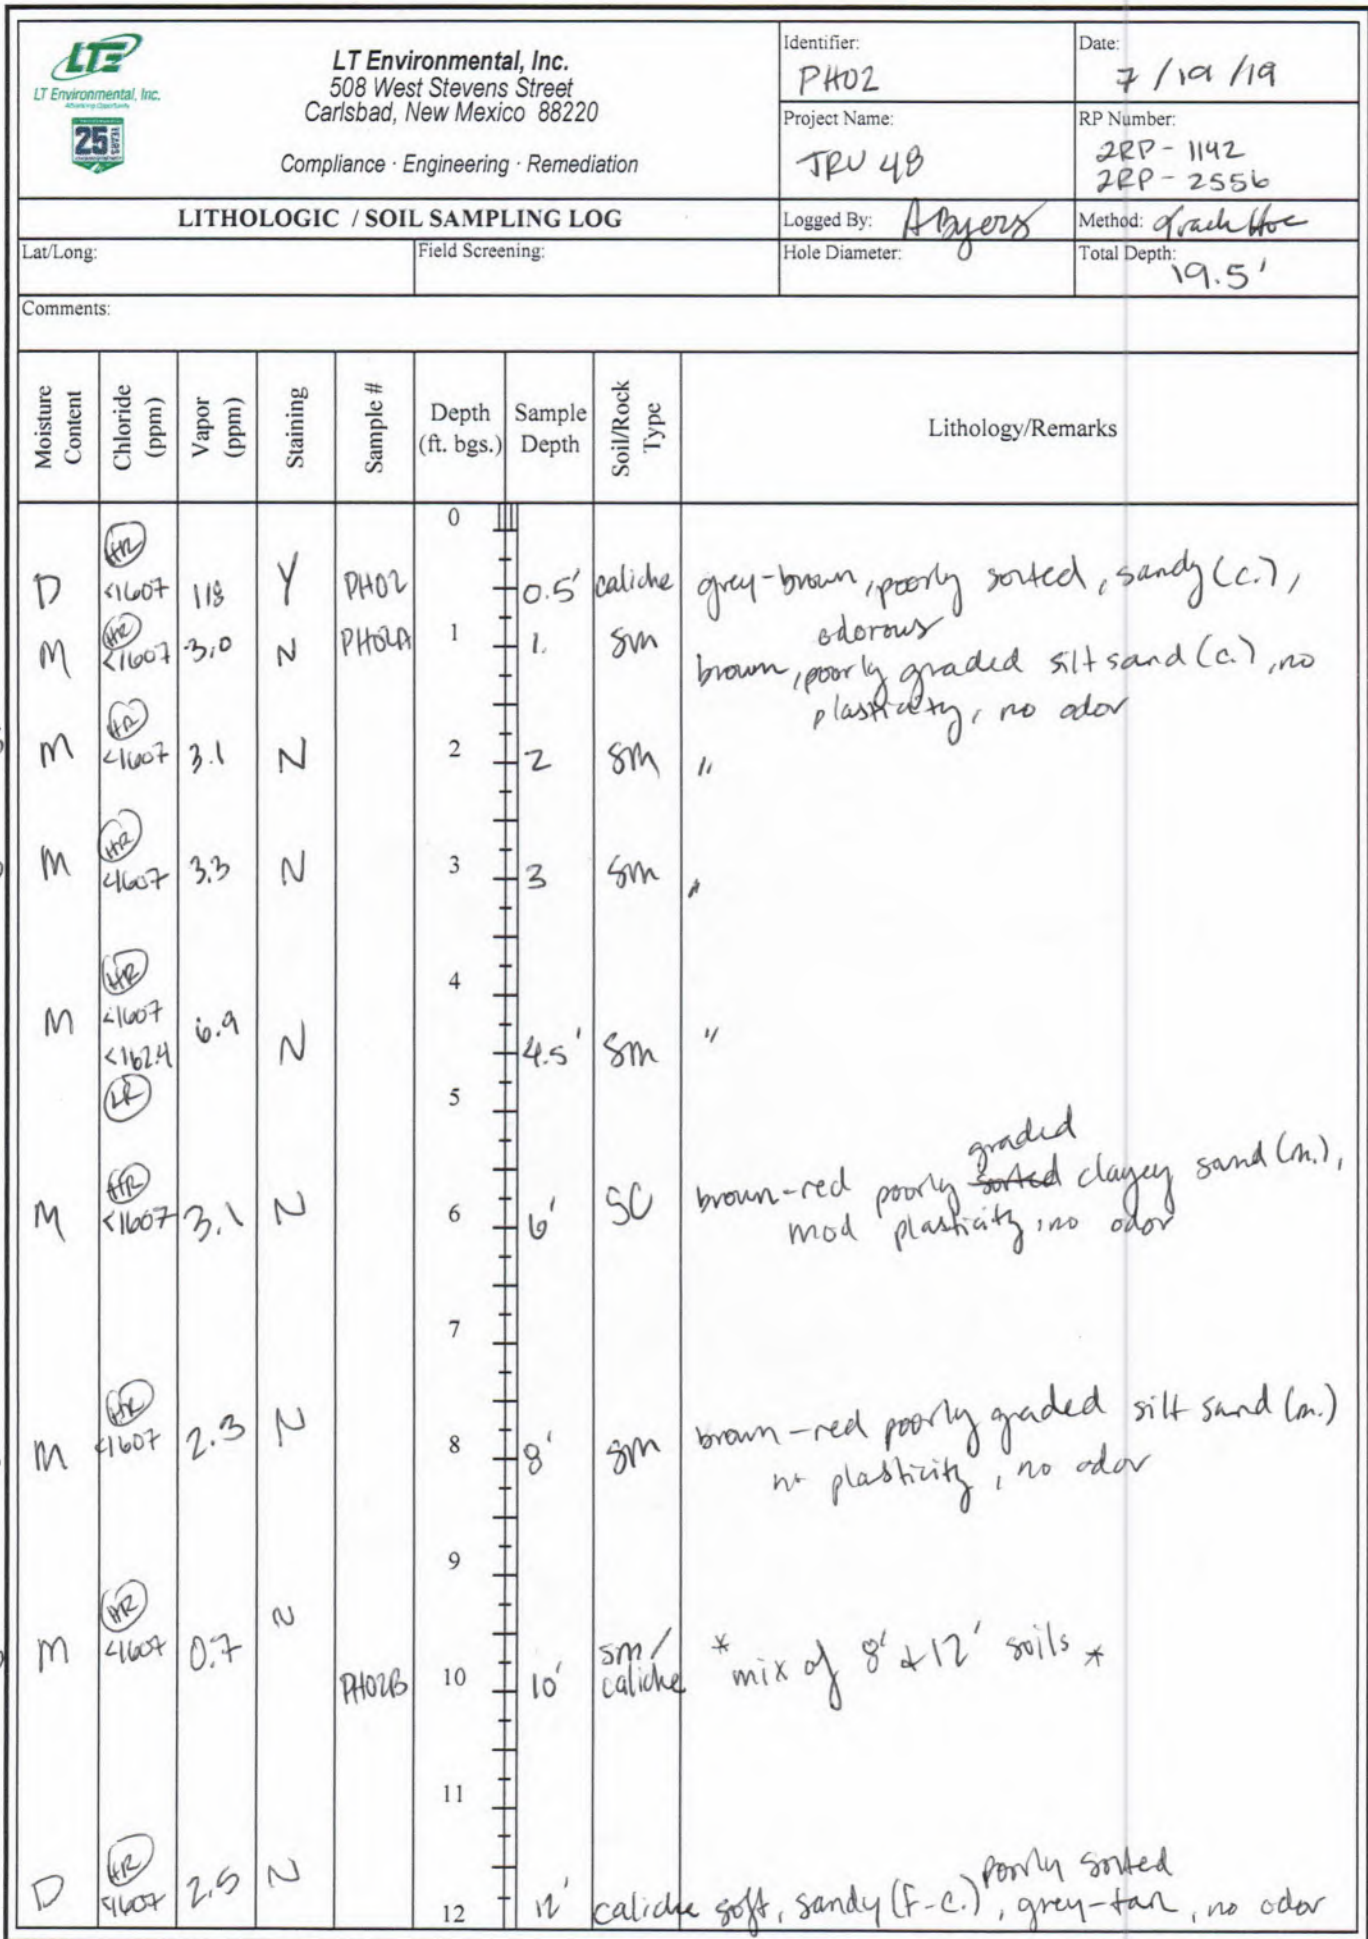 LTE
LT Environmental, Inc.
Advancing Opportunity
25 YEARS
LT Environmental, Inc.
508 West Stevens Street
Carlsbad, New Mexico 88220
Compliance · Engineering · Remediation
Identifier:
PH02
Date:
7/19/19
Project Name:
JRU 48
RP Number:
2RP-1142
2RP-2556
LITHOLOGIC / SOIL SAMPLING LOG
Logged By: A Byers
Method: Track Hoe
Lat/Long:
Field Screening:
Hole Diameter:
Total Depth:
19.5'
Comments:
Moisture Content
Chloride (ppm)
Vapor (ppm)
Staining
Sample #
Depth (ft. bgs.)
Sample Depth
Soil/Rock Type
Lithology/Remarks
0
HR
D <1607 118 Y PH02 0.5' caliche grey-brown, poorly sorted, sandy (c.),
odorous
HR
M <1607 3.0 N PH02A 1 1. SM brown, poorly graded silt sand (c.), no
plasticity, no odor
HR
M <1607 3.1 N 2 2 SM "
HR
M <1607 3.3 N 3 3 SM "
HR
4
M <1607 6.9 N 4.5' SM "
<162.4
LR
5
graded
HR
M <1607 3.1 N 6 6' SC brown-red poorly sorted clayey sand (m.),
mod plasticity, no odor
7
HR
M <1607 2.3 N 8 8' SM brown-red poorly graded silt sand (m.)
no plasticity, no odor
9
HR
M <1607 0.7 N PH02B 10 10' SM/ caliche * mix of 8' & 12' soils *
11
HR
poorly sorted
D <1607 2.5 N 12 12' caliche soft, sandy (f-c.), grey-tan, no odor